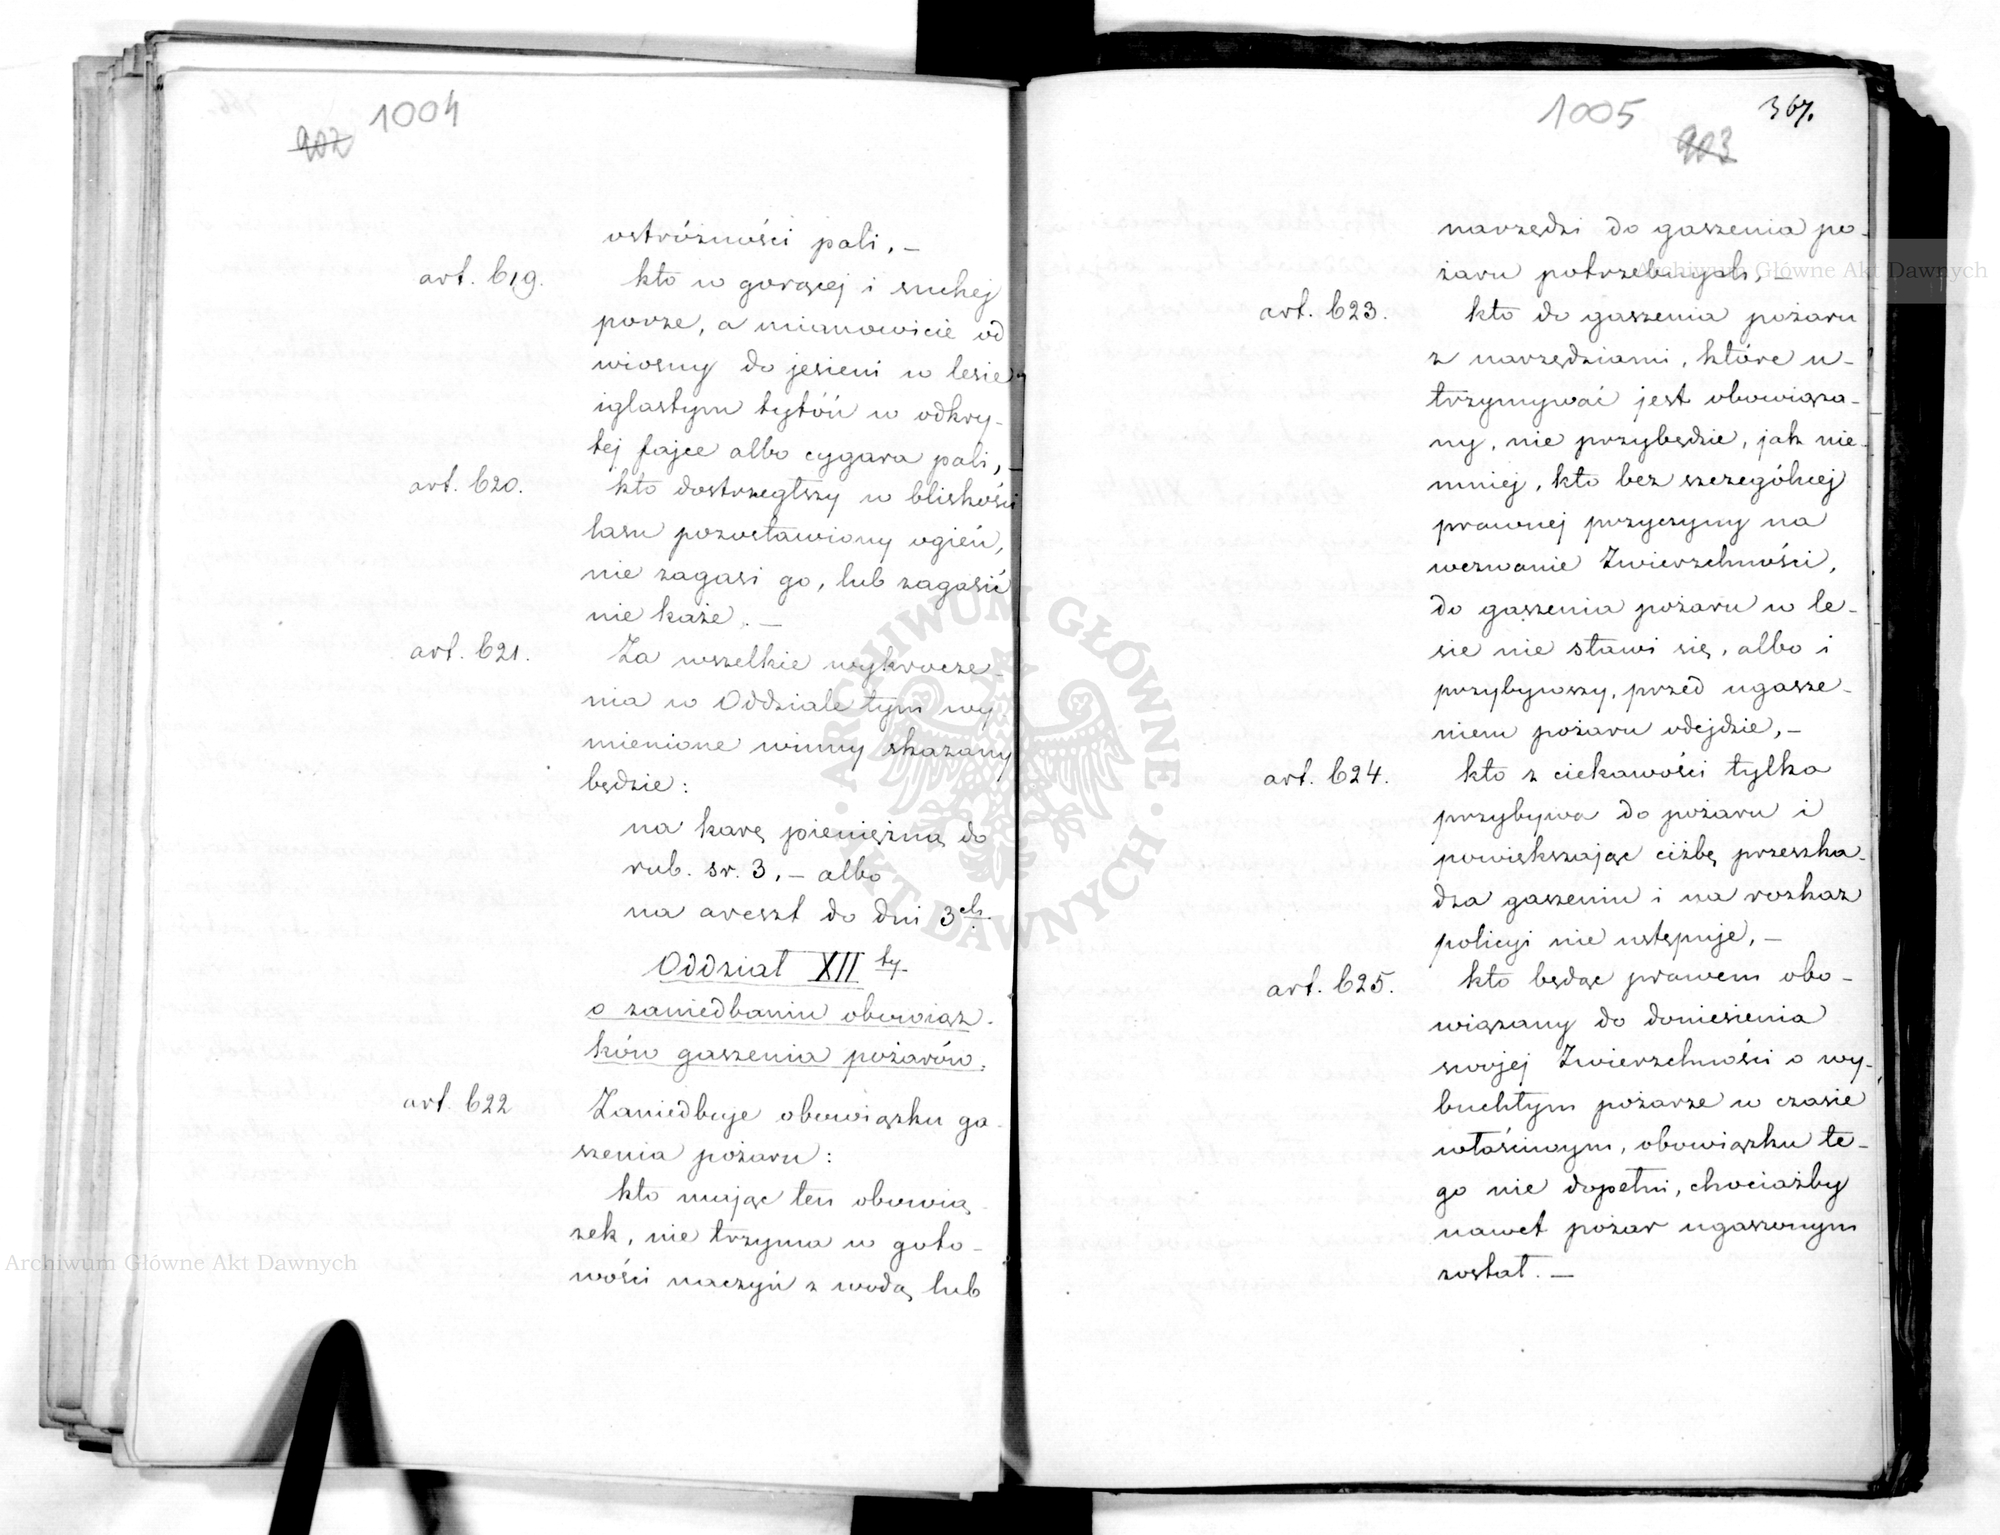 1004
902
ostróżności pali, –
art. 619. kto w gorącej i suchej
porze, a mianowicie od
wiosny do jesieni w lesie
iglastym tytóń w odkry-
tej fajce albo cygara pali, –
art. 620. kto dostrzegłszy w bliskości
lasu pozostawiony ogień,
nie zagasi go, lub zagasić
nie każe. –
art. 621. Za wszelkie wykrocze-
nia w Oddziale tym wy
mienione winny skazany
będzie:
na karę pieniężną do
rub. sr. 3, – albo
na areszt do dni 3ch.
Oddział XII ty.
o zaniedbaniu obowiąz-
ków gaszenia pożarów.
art. 622 Zaniedbuje obowiązku ga-
szenia pożaru:
kto mając ten obowią-
zek, nie trzyma w goto-
wości naczyń z wodą lub
1005
367.
903
narzędzi do gaszenia po-
żaru potrzebnych, –
art. 623. kto do gaszenia pożaru
z narzędziami, które u-
trzymywać jest obowiąza-
ny, nie przybędzie, jak nie-
mniej, kto bez szczególnej
prawnej przyczyny na
wezwanie Zwierzchności,
do gaszenia pożaru w le-
sie nie stawi się, albo i
przybywszy, przed ugasze-
niem pożaru odejdzie, –
art. 624. kto z ciekawości tylko
przybywa do pożaru i
powiększając ciżbę przeszka-
dza gaszeniu i na rozkaz
policyi nie ustępuje, –
art. 625. kto będąc prawem obo-
wiązany do doniesienia
swojej Zwierzchności o wy-
buchłym pożarze w czasie
właściwym, obowiązku te-
go nie dopełni, chociażby
nawet pożar ugaszonym
został. –
Archiwum Główne Akt Dawnych
Archiwum Główne Akt Dawnych
ARCHIWUM GŁÓWNE · AKT DAWNYCH ·